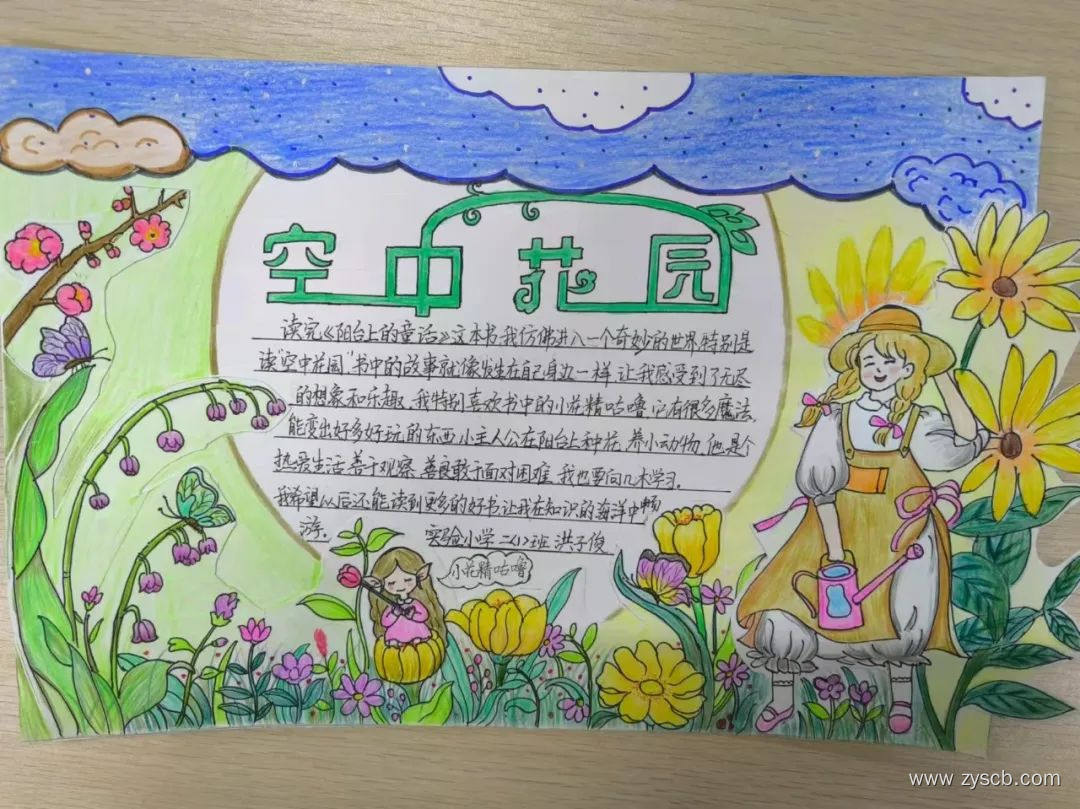 空中花园
读完《阳台上的童话》这本书我仿佛进入一个奇妙的世界特别是
读"空中花园"书中的故事就像发生在自己身边一样,让我感受到了无尽
的想象和乐趣。我特别喜欢书中的小花精咕噜,它有很多魔法,
能变出好多好玩的东西,小主人公在阳台上种花、养小动物,他是个
热爱生活、善于观察、善良敢于面对困难,我也要向几木学习。
我希望从后还能读到更多的好书让我在知识的海洋中畅
游。
实验小学二(1)班 洪子俊
小花精咕噜
www.zyscb.com